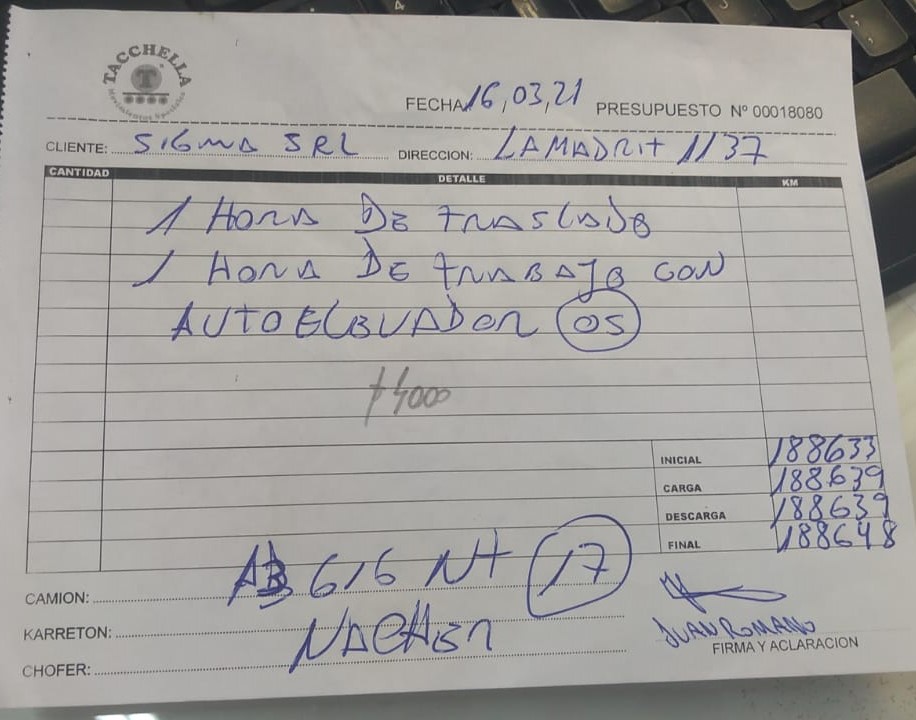 TACCHELLA
Movimientos Especiales
FECHA 16,03,21 PRESUPUESTO Nº 00018080
CLIENTE: SIGMA SRL DIRECCION: LAMADRIT 1137
CANTIDAD DETALLE KM
1 HORA DE TRASLADO
1 HORA DE TRABAJO CON
AUTOELEVADOR 05
4000
INICIAL 188633
CARGA 188639
DESCARGA 188639
FINAL 188648
CAMION: AB 616 Nt 17
KARRETON:
CHOFER:
JUAN ROMANO
FIRMA Y ACLARACION